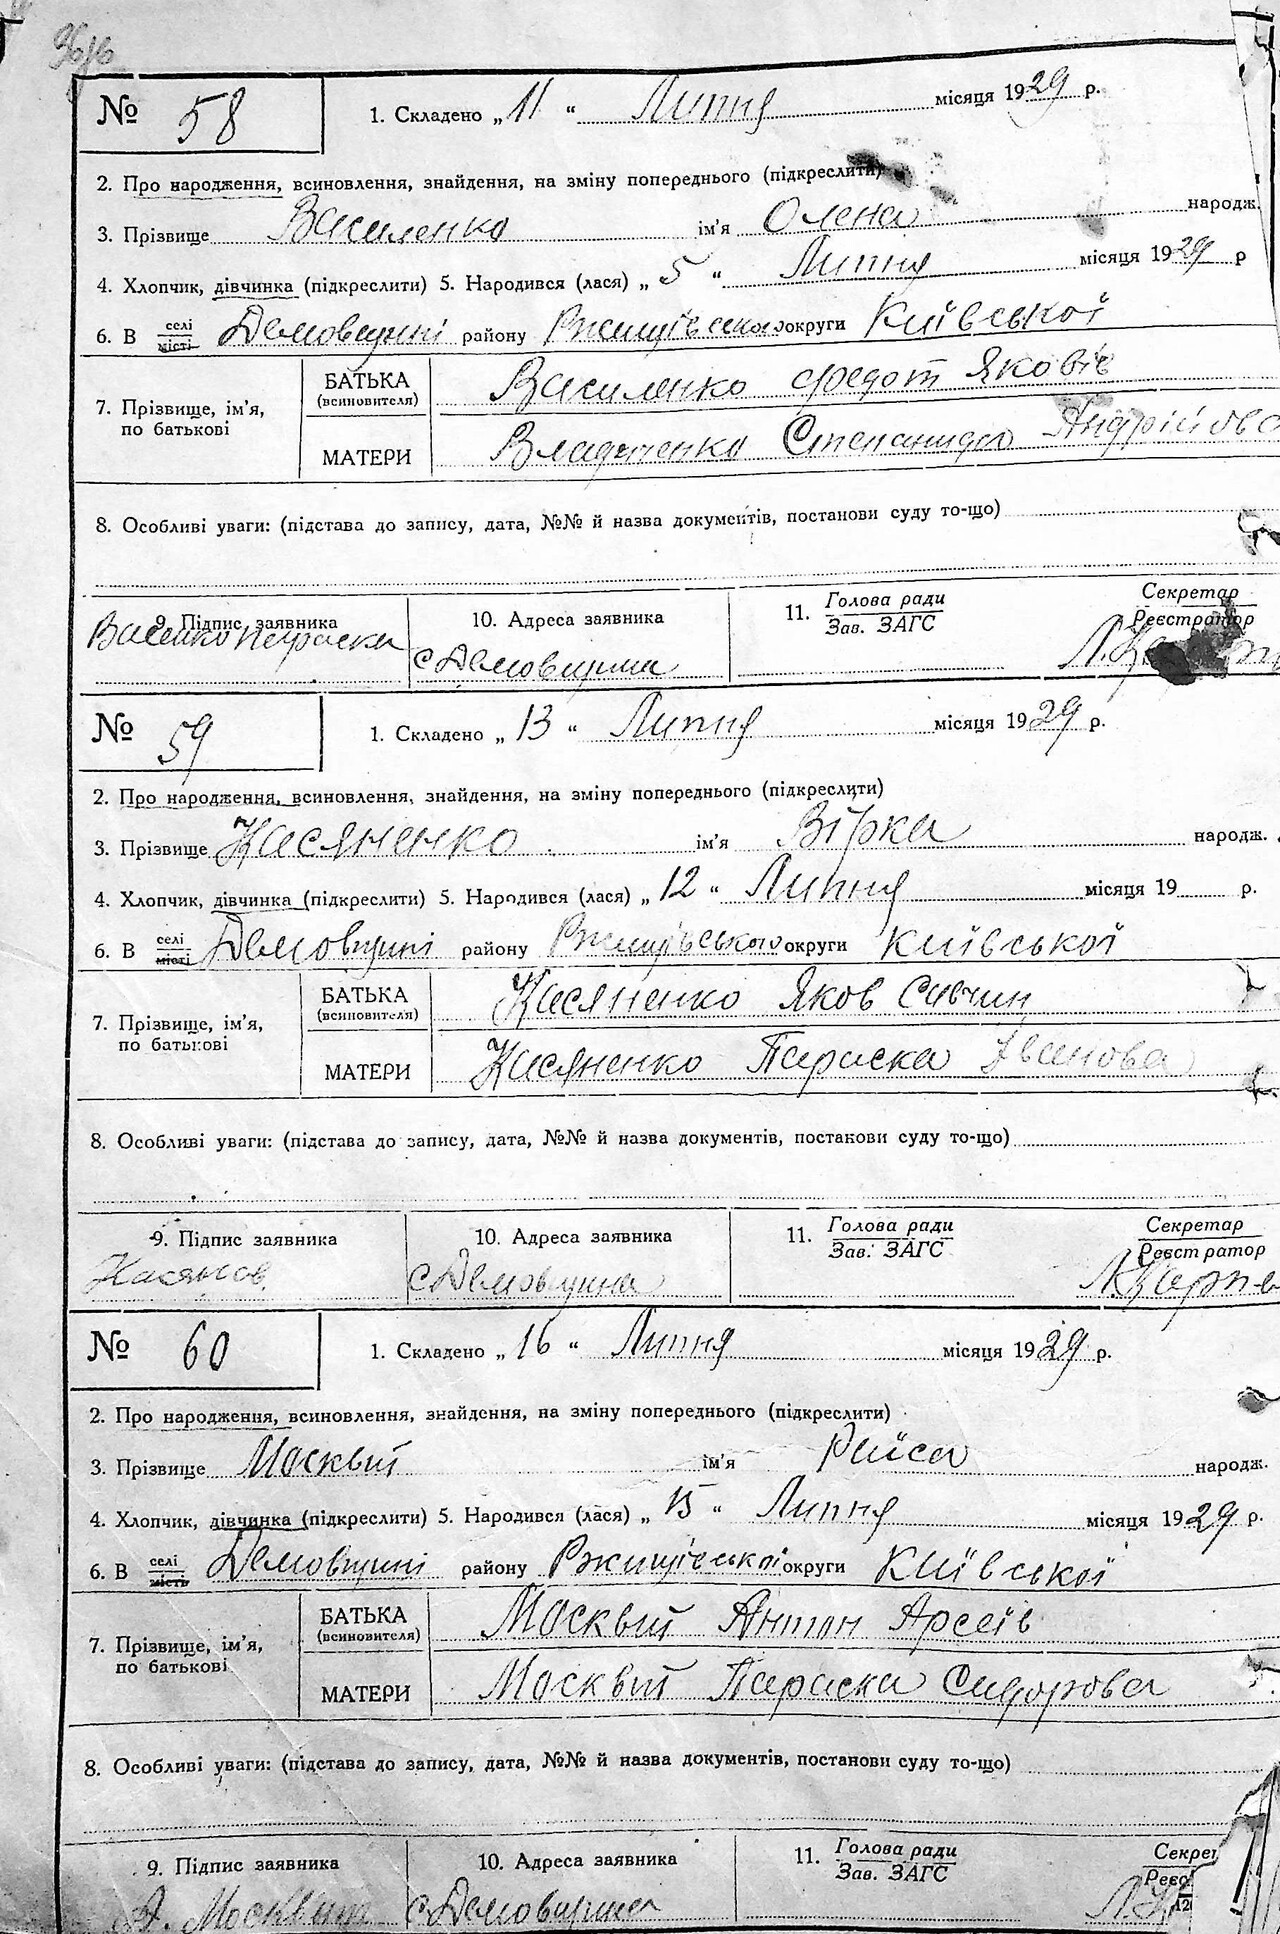 № 58
1. Складено „ 11 “ Липня місяця 1929 р.
2. Про народження, всиновлення, знайдення, на зміну попереднього (підкреслити)
3. Прізвище Василенко ім'я Олена народж.
4. Хлопчик, дівчинка (підкреслити) 5. Народився (лася) „ 5 “ Липня місяця 1929 р
6. В селі місті Демовщині району Ржищівського округи Київської
7. Прізвище, ім'я, по батькові
БАТЬКА (всиновителя) Василенко Федот Яковів
МАТЕРИ Степанида Андрійова
8. Особливі уваги: (підстава до запису, дата, №№ й назва документів, постанови суду то-що)
9. Підпис заявника 10. Адреса заявника 11. Голова ради Зав. ЗАГС Секретар Реєстратор
с Демовщина
№ 59
1. Складено „ 13 “ Липня місяця 1929 р.
2. Про народження, всиновлення, знайдення, на зміну попереднього (підкреслити)
3. Прізвище Касяненко ім'я Вірка народж.
4. Хлопчик, дівчинка (підкреслити) 5. Народився (лася) „ 12 “ Липня місяця 19 р.
6. В селі місті Демовщині району Ржищівського округи Київської
7. Прізвище, ім'я, по батькові
БАТЬКА (всиновителя) Касяненко Яков Савчин
МАТЕРИ Касяненко Параска Іванова
8. Особливі уваги: (підстава до запису, дата, №№ й назва документів, постанови суду то-що)
9. Підпис заявника 10. Адреса заявника 11. Голова ради Зав. ЗАГС Секретар Реєстратор
с Демовщина
№ 60
1. Складено „ 16 “ Липня місяця 1929 р.
2. Про народження, всиновлення, знайдення, на зміну попереднього (підкреслити)
3. Прізвище Москвит ім'я Раїса народж.
4. Хлопчик, дівчинка (підкреслити) 5. Народився (лася) „ 15 “ Липня місяця 1929 р.
6. В селі мість Демовщині району Ржищівської округи Київської
7. Прізвище, ім'я, по батькові
БАТЬКА (всиновителя) Москвит Антон Арсеїв
МАТЕРИ Москвит Параска Сидорова
8. Особливі уваги: (підстава до запису, дата, №№ й назва документів, постанови суду то-що)
9. Підпис заявника 10. Адреса заявника 11. Голова ради Зав. ЗАГС Секрет
А. Москвит с Демовщина